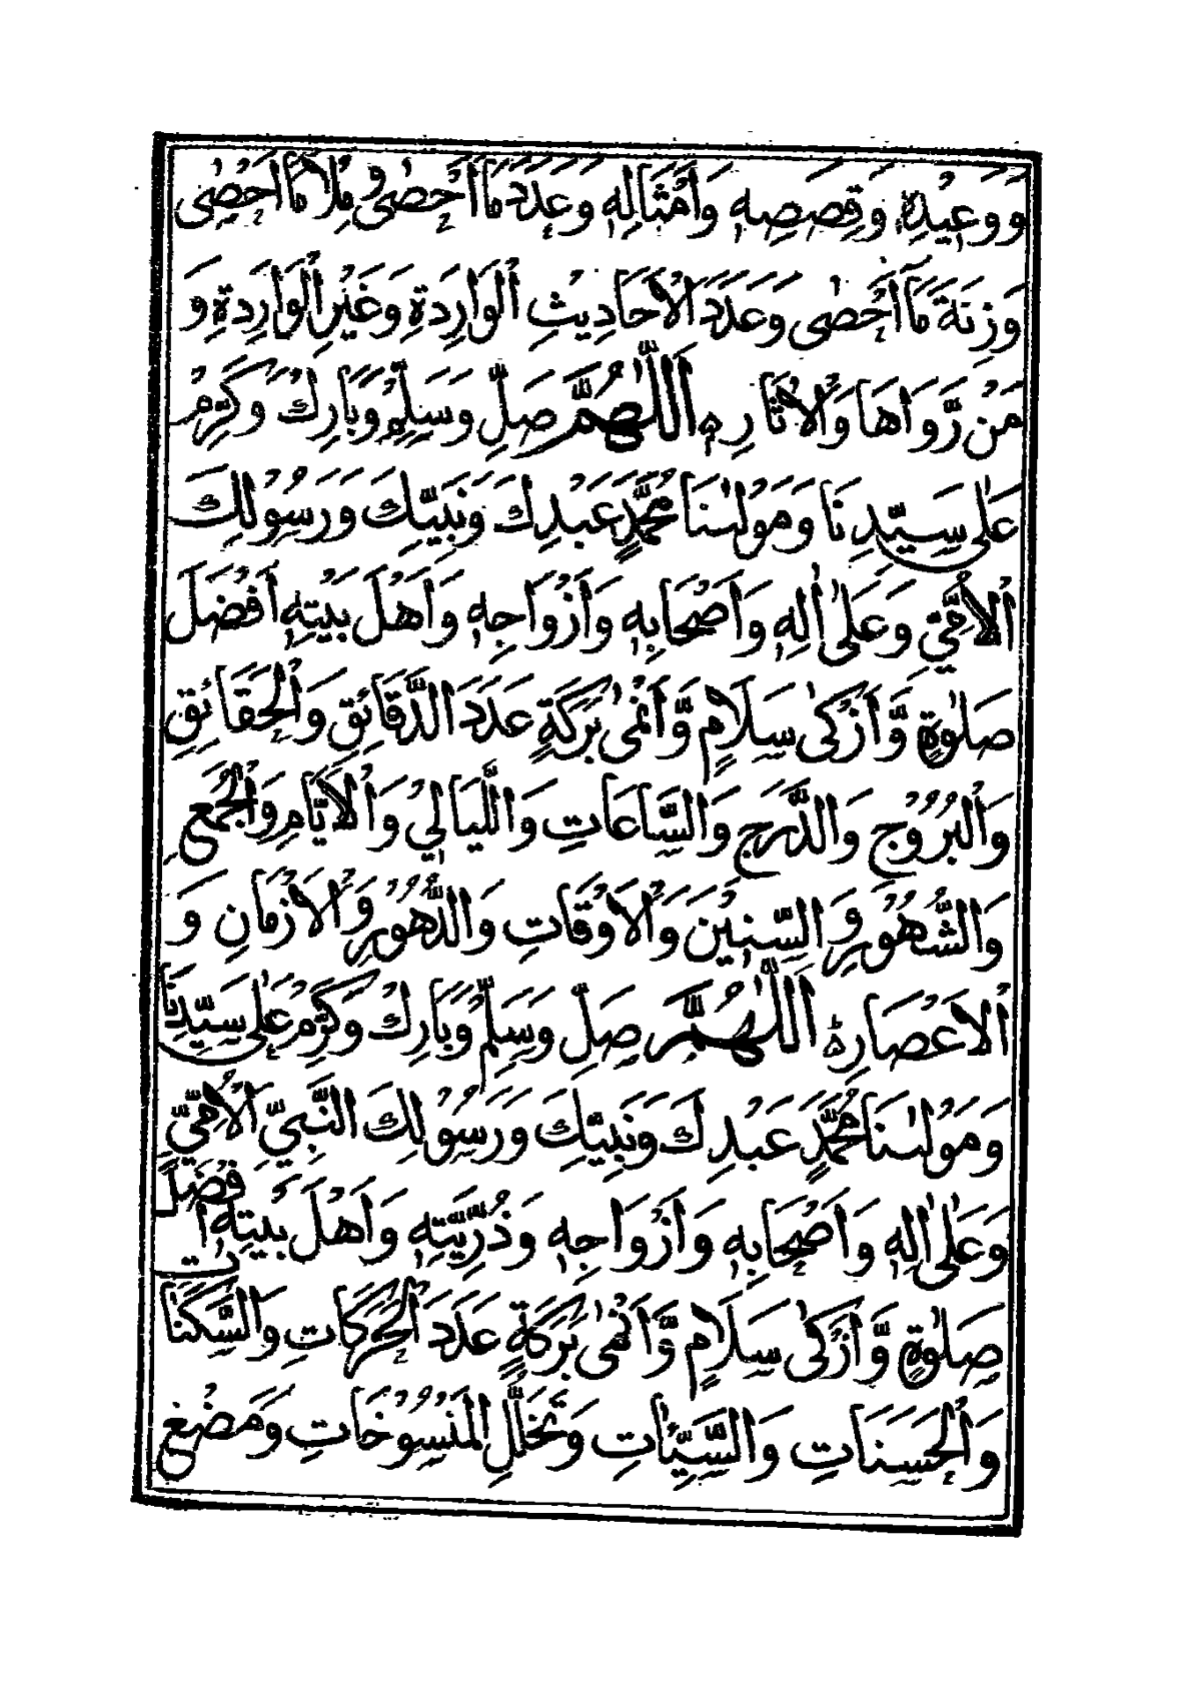 وَوَعِيْدِهٖ وَقِصَصِهٖ وَاَمْثَالِهٖ وَعَدَدَ مَا اَحْصٰى وَمِلْاَ مَا اَحْصٰى
وَزِنَةَ مَا اَحْصٰى وَعَدَدَ الْاَحَادِيْثِ الْوَارِدَةِ وَغَيْرِ الْوَارِدَةِ وَ
مَنْ رَّوَاهَا وَالْاٰثَارِ ہ اَللّٰهُمَّ صَلِّ وَسَلِّمْ وَبَارِكْ وَكَرِّمْ
عَلٰى سَيِّدِنَا وَمَوْلٰىنَا مُحَمَّدٍ عَبْدِكَ وَنَبِيِّكَ وَرَسُوْلِكَ
الْاُمِّيِّ وَعَلٰى اٰلِهٖ وَاَصْحَابِهٖ وَاَزْوَاجِهٖ وَاَهْلَ بَيْتِهٖ اَفْضَلَ
صَلٰوةٍ وَّاَزْكٰى سَلَامٍ وَّاَنْمٰى بَرَكَةٍ عَدَدَ الدَّقَائِقِ وَالْحَقَائِقِ
وَالْبُرُوْجِ وَالدَّرَجِ وَالسَّاعَاتِ وَاللَّيَالِيْ وَالْاَيَّامِ وَالْجُمَعِ
وَالشُّهُوْرِ وَالسِّنِيْنَ وَالْاَوْقَاتِ وَالدُّهُوْرِ وَالْاَزْمَانِ وَ
الْاَعْصَارِ ہ اَللّٰهُمَّ صَلِّ وَسَلِّمْ وَبَارِكْ وَكَرِّمْ عَلٰى سَيِّدِنَا
وَمَوْلٰىنَا مُحَمَّدٍ عَبْدِكَ وَنَبِيِّكَ وَرَسُوْلِكَ النَّبِيِّ الْاُمِّيِّ
وَعَلٰى اٰلِهٖ وَاَصْحَابِهٖ وَاَزْوَاجِهٖ وَذُرِّيَّتِهٖ وَاَهْلَ بَيْتِهٖ اَفْضَلَ
صَلٰوةٍ وَّاَزْكٰى سَلَامٍ وَّاَنْمٰى بَرَكَةٍ عَدَدَ الْحَرَكَاتِ وَالسَّكَنَاتِ
وَالْحَسَنَاتِ وَالسَّيِّئٰاتِ وَتَخَلُّلِ الْمَنْسُوْخَاتِ وَمَضْغِ